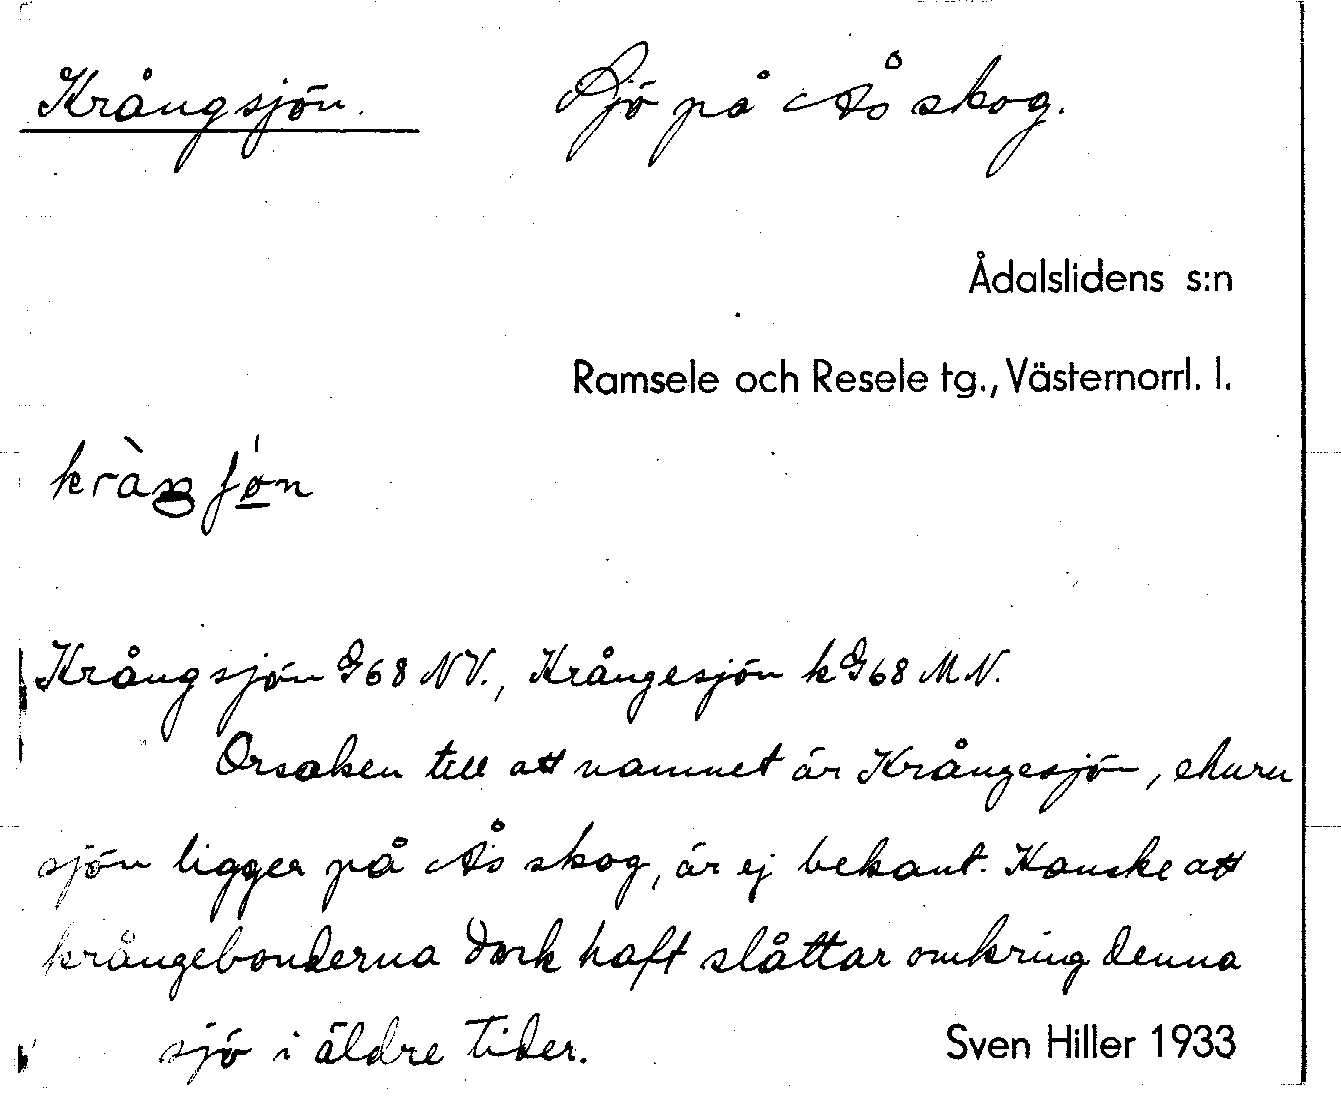 Krångsjön. Sjö på Ås skog.
Ådalslidens s:n
Ramsele och Resele tg., Västernorrl. l.
Krångsjön G68 NV., Krångesjön k G68 M.N.
Orsaken till att namnet är Krångesjön, ehuru
sjön ligger på Ås skog, är ej bekant. Kanske att
krångebönderna dock haft slåttar omkring denna
sjö i äldre tider.
Sven Hiller 1933